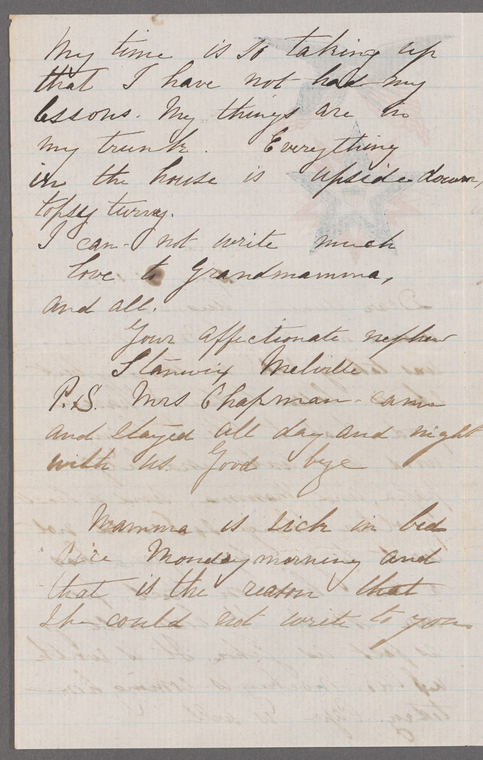 My time is so taking up
that I have not had my
lessons. My things are in
my trunk. Everything
in the house is upside down,
topsy turvy.
I can not write much
love to Grandmamma,
and all.
Your affectionate nephew
Stanwix Melville
P.S. Mrs Chapman came
and stayed all day and night
with us Good bye
Mamma is sick in bed
Monday morning and
that is the reason that
She could not write to you